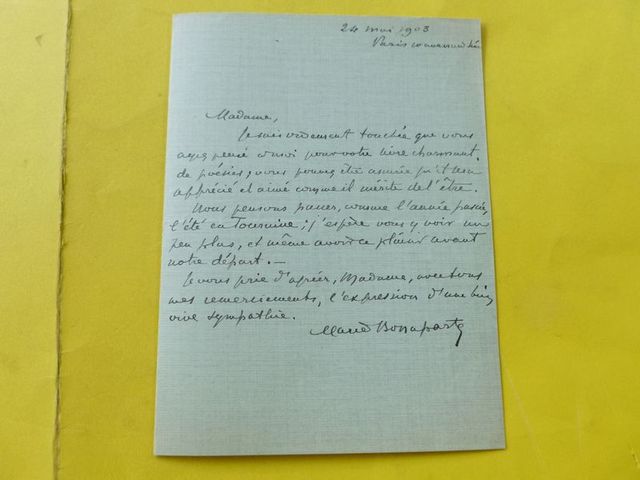 24 mai 1903
Paris
Madame,
Je suis vivement touchée que vous
ayez pensé à moi pour votre livre charmant
de poésies, vous pouvez être assurée qu'il sera
apprécié et aimé comme il mérite de l'être.
Nous pensons passer, comme l'année passée,
l'été en Touraine; j'espère vous y voir un
peu plus, et même avoir ce plaisir avant
notre départ. —
Je vous prie d'agréer, Madame, avec tous
mes remerciements, l'expression d'une bien
vive sympathie.
Marie Bonaparte